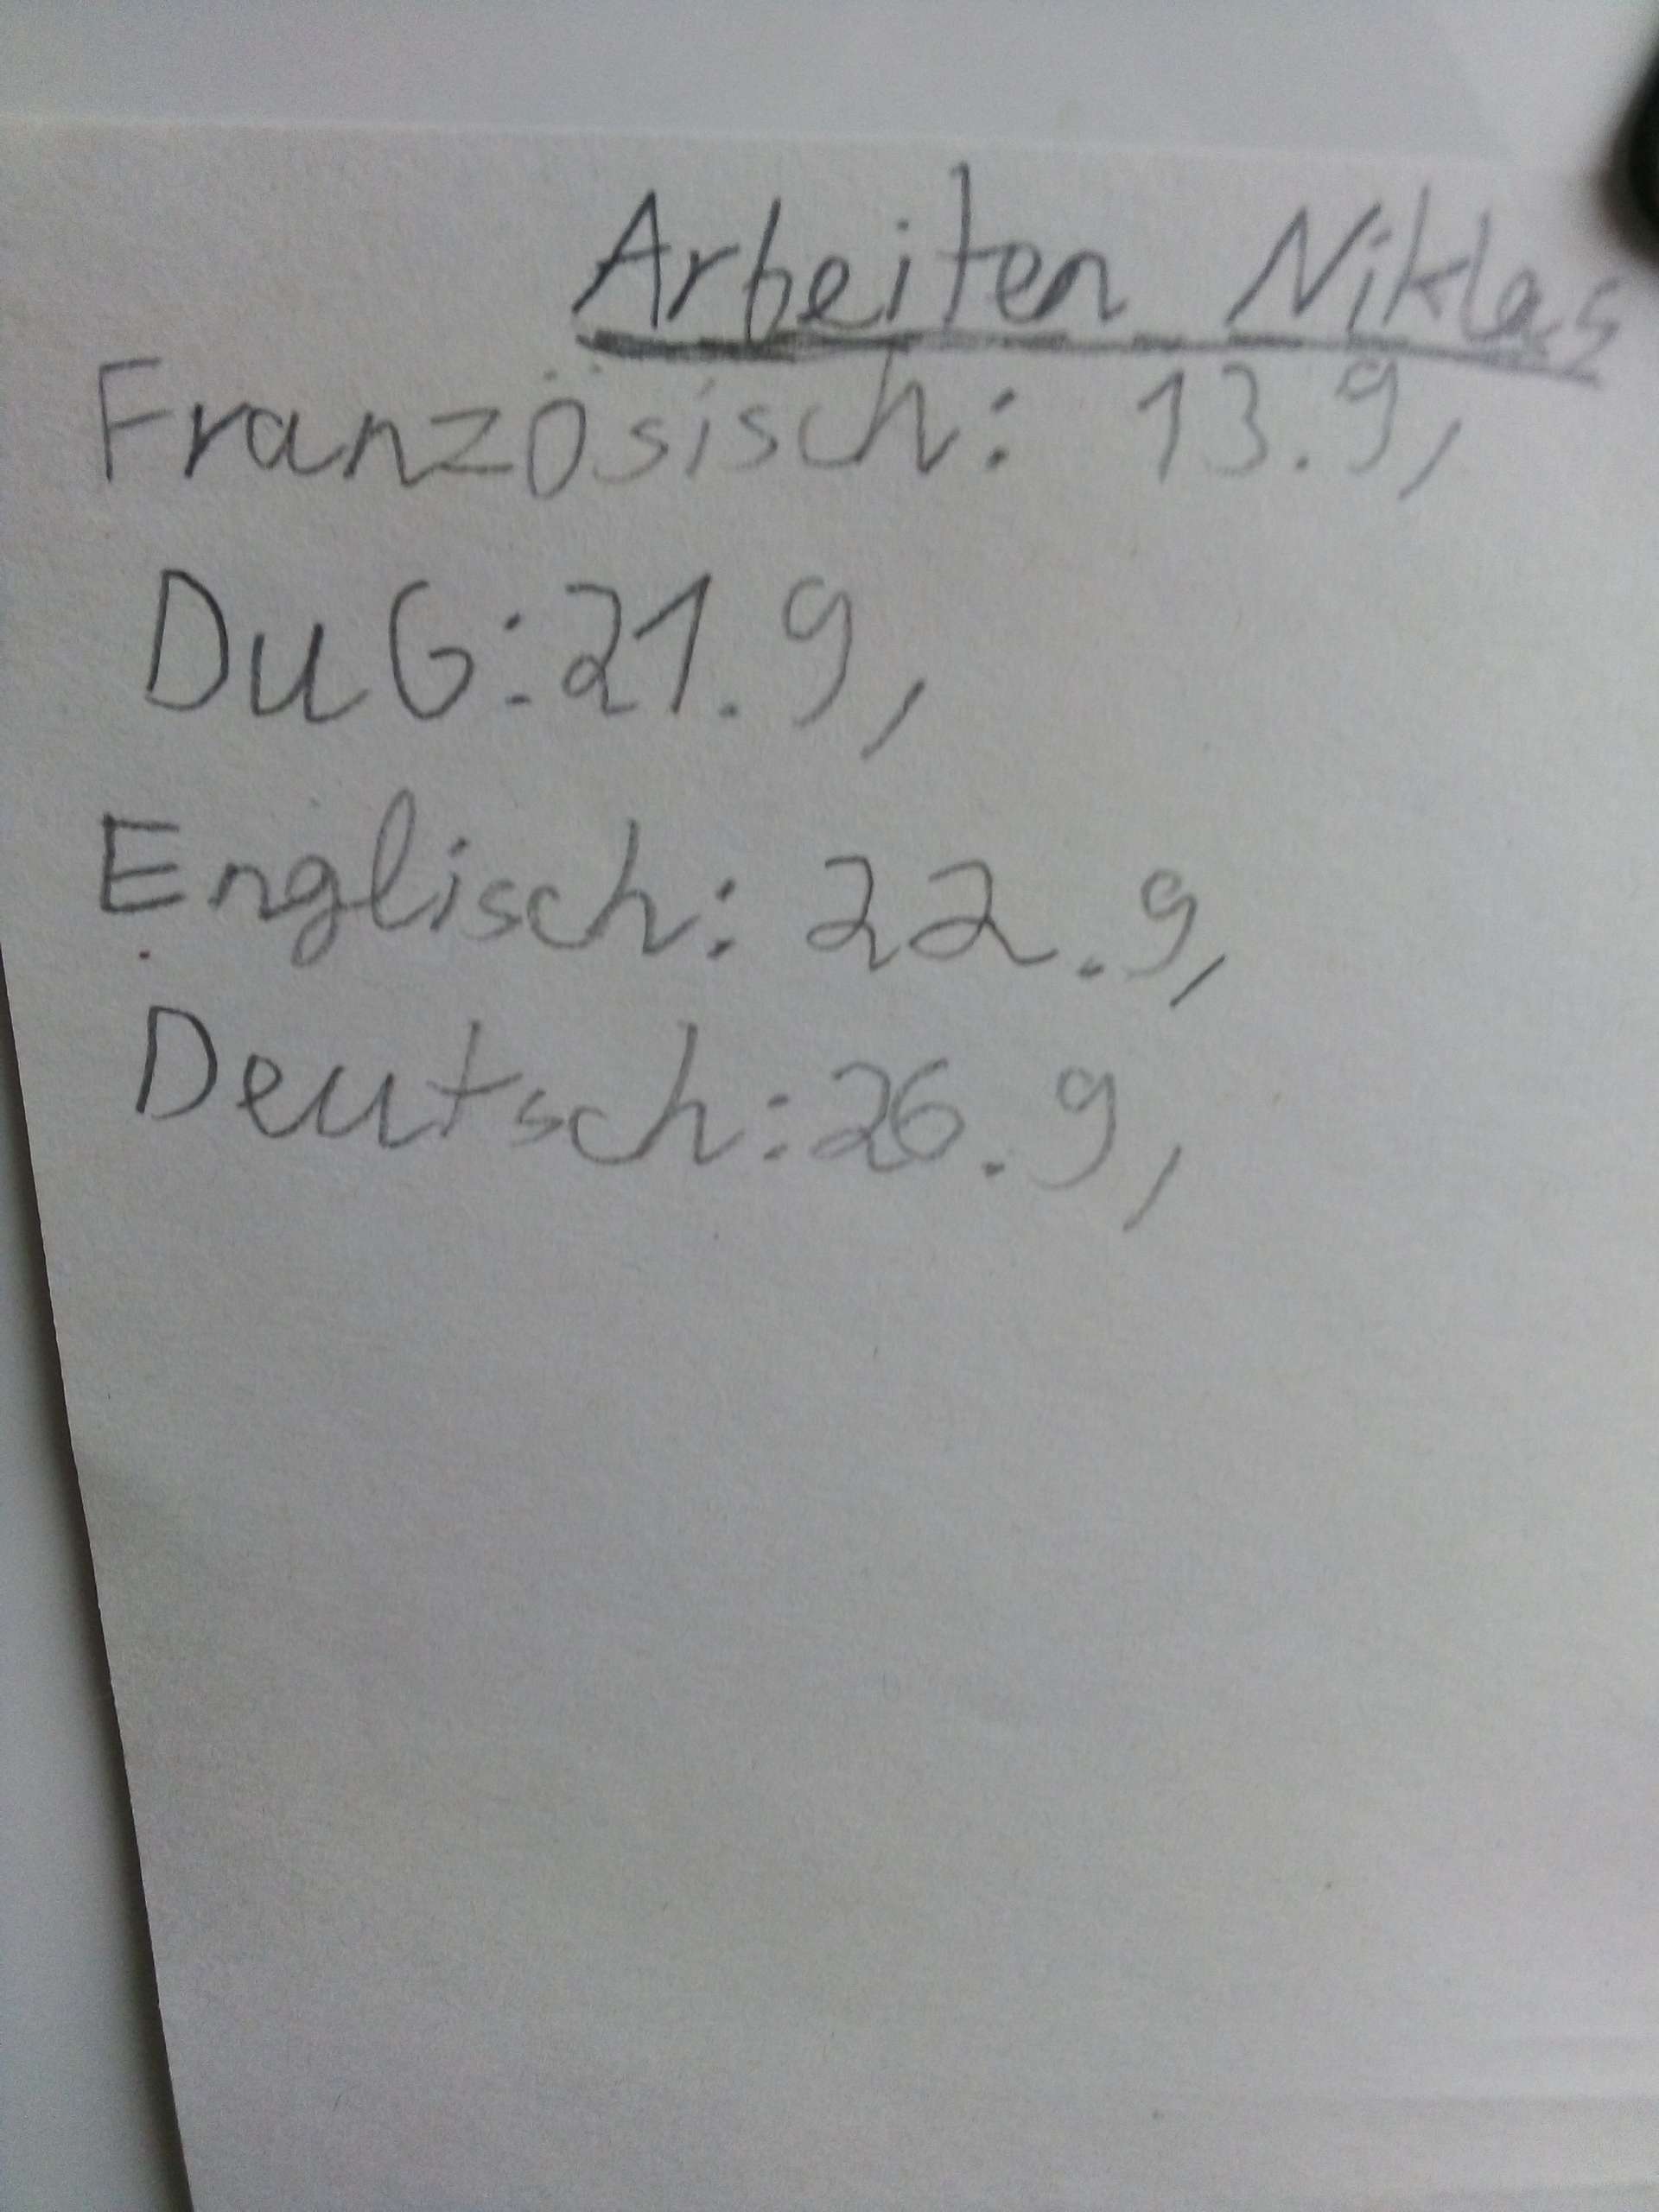 Arbeiten Niklas
Französisch: 13.9,
DuG: 21.9,
Englisch: 22.9,
Deutsch: 26.9,